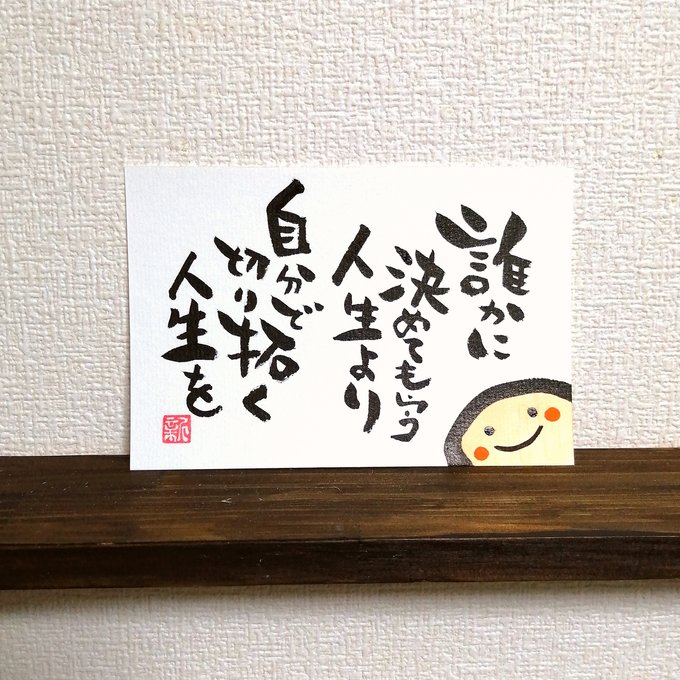 誰かに
決めてもらう
人生より
自分で
切り拓く
人生を
新